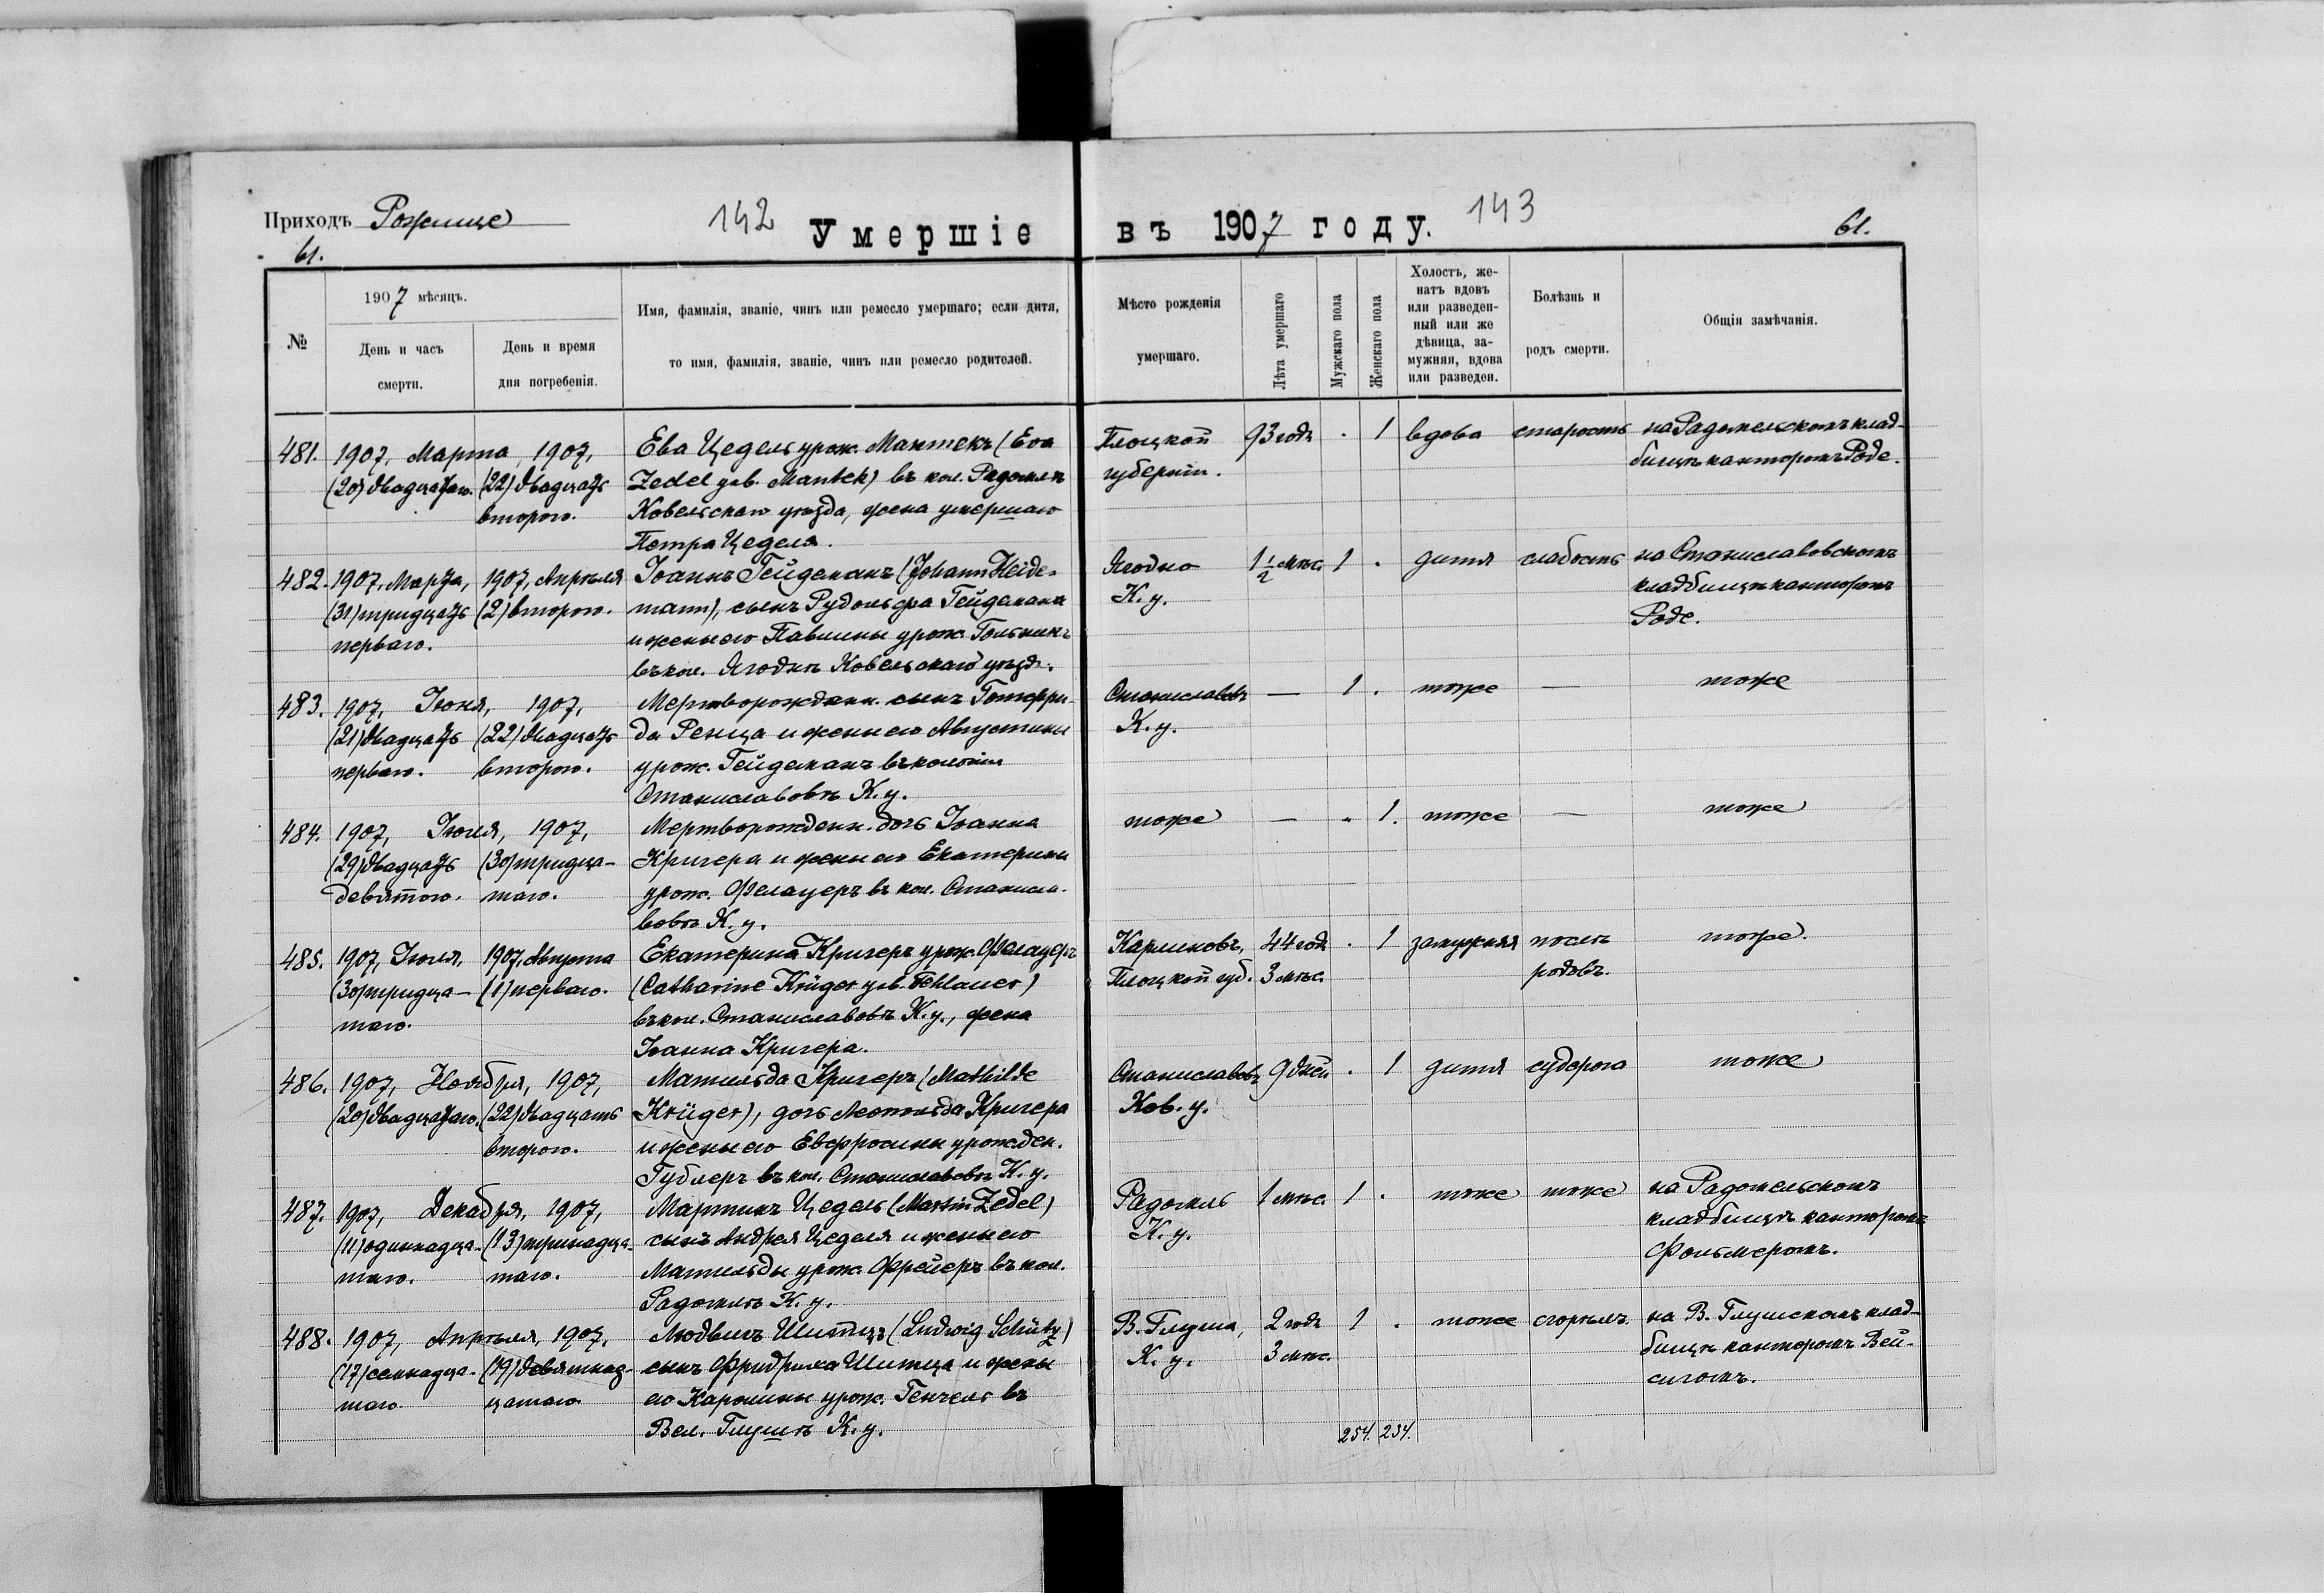 Приходъ Рожище
142
Умершіе
въ 1907 году.
143
61.
61.
№
1907 мѣсяцъ.
День и часъ
смерти.
День и время
дня погребенія.
Имя, фамилія, званіе, чинъ или ремесло умершаго; если дитя,
то имя, фамилія, званіе, чинъ или ремесло родителей.
Мѣсто рожденія
умершаго.
Лѣта умершаго
Мужскаго пола
Женскаго пола
Холостъ, же-
натъ вдовъ
или разведен-
ный или же
дѣвица, за-
мужняя, вдова
или разведен.
Болѣзнь и
родъ смерти.
Общія замѣчанія.
481. 1907, Марта, 1907, Ева Цедель урож. Мантекъ (Eva Плоцкой 93 года . 1 вдова старость на Радомельскомъ клад-
(20) двадцатаго. (22) двадцать Zedel geb. Mantek) въ кол. Радомлѣ губерніи. бищѣ канторомъ Роде.
второго. Ковельскаго уѣзда, жена умершаго
Петра Цеделя.
482. 1907, Марта, 1907, Апрѣля Іоаннъ Гейдеманъ (Johann Heide- Ягодно 1 1/2 мѣс. 1 . дитя слабость на Станиславовскомъ
(31) тридцать (2) второго. mann), сынъ Рудольфа Гейдемана К. у. кладбищѣ канторомъ
перваго. и жены его Павлины урож. Гольникъ Роде.
въ кол. Ягоднѣ Ковельскаго уѣзд.
483. 1907, Іюня, 1907, Мертворожденн. сынъ Готфри- Станиславовъ — 1 . тоже — тоже
(21) двадцать (22) двадцать да Ренца и жены его Августины К. у.
перваго. второго. урож. Гейдеманъ въ колоніи
Станиславовѣ К. у.
484. 1907, Іюля, 1907, Мертворожденн. дочь Іоанна тоже — . 1. тоже — тоже
(29) двадцать (30) тридца- Кригера и жены его Екатерины
девятого. таго. урож. Фелауеръ въ кол. Станисла-
вовѣ К. у.
485. 1907, Іюля, 1907, Августа Екатерина Кригеръ урож. Фелауеръ Карликовъ, 44 года . 1 замужняя послѣ тоже.
(30) тридца- (1) перваго. (Catharine Krüger geb. Fehlauer) Плоцкой губ. 3 мѣс. родовъ.
таго. въ кол. Станиславовѣ К. у., жена
Іоанна Кригера.
486. 1907, Ноября, 1907, Матильда Кригеръ (Mathilde Станиславовъ 9 дней . 1 дитя судорога тоже
(20) двадцатаго. (22) двадцать Krüger), дочь Леопольда Кригера Ков. у.
второго. и жены его Евфросины урожден.
Гублеръ въ кол. Станиславовѣ К. у.
487. 1907, Декабря, 1907, Мартинъ Цедель (Martin Zedel) Радомль 1 мѣс. 1 . тоже тоже на Радомельскомъ
(11) одиннадца- (13) тринадца- сынъ Андрея Цеделя и жены его К. у. кладбищѣ канторомъ
таго. таго. Матильды урож. Фрейеръ въ кол. Фольмеромъ.
Радомлѣ К. у.
488. 1907, Апрѣля, 1907, Людвигъ Шитцъ (Ludwig Schütz) В. Глуша, 2 года 1 . тоже сгорѣлъ. на В. Глушскомъ клад-
(17) семнадца- (19) девятнад- сынъ Фридриха Шитца и жены К. у. 3 мѣс. бищѣ канторомъ Вей-
таго цатаго его Каролины урож. Генчель въ сигомъ.
Вел. Глушѣ К. у.
254. 234.